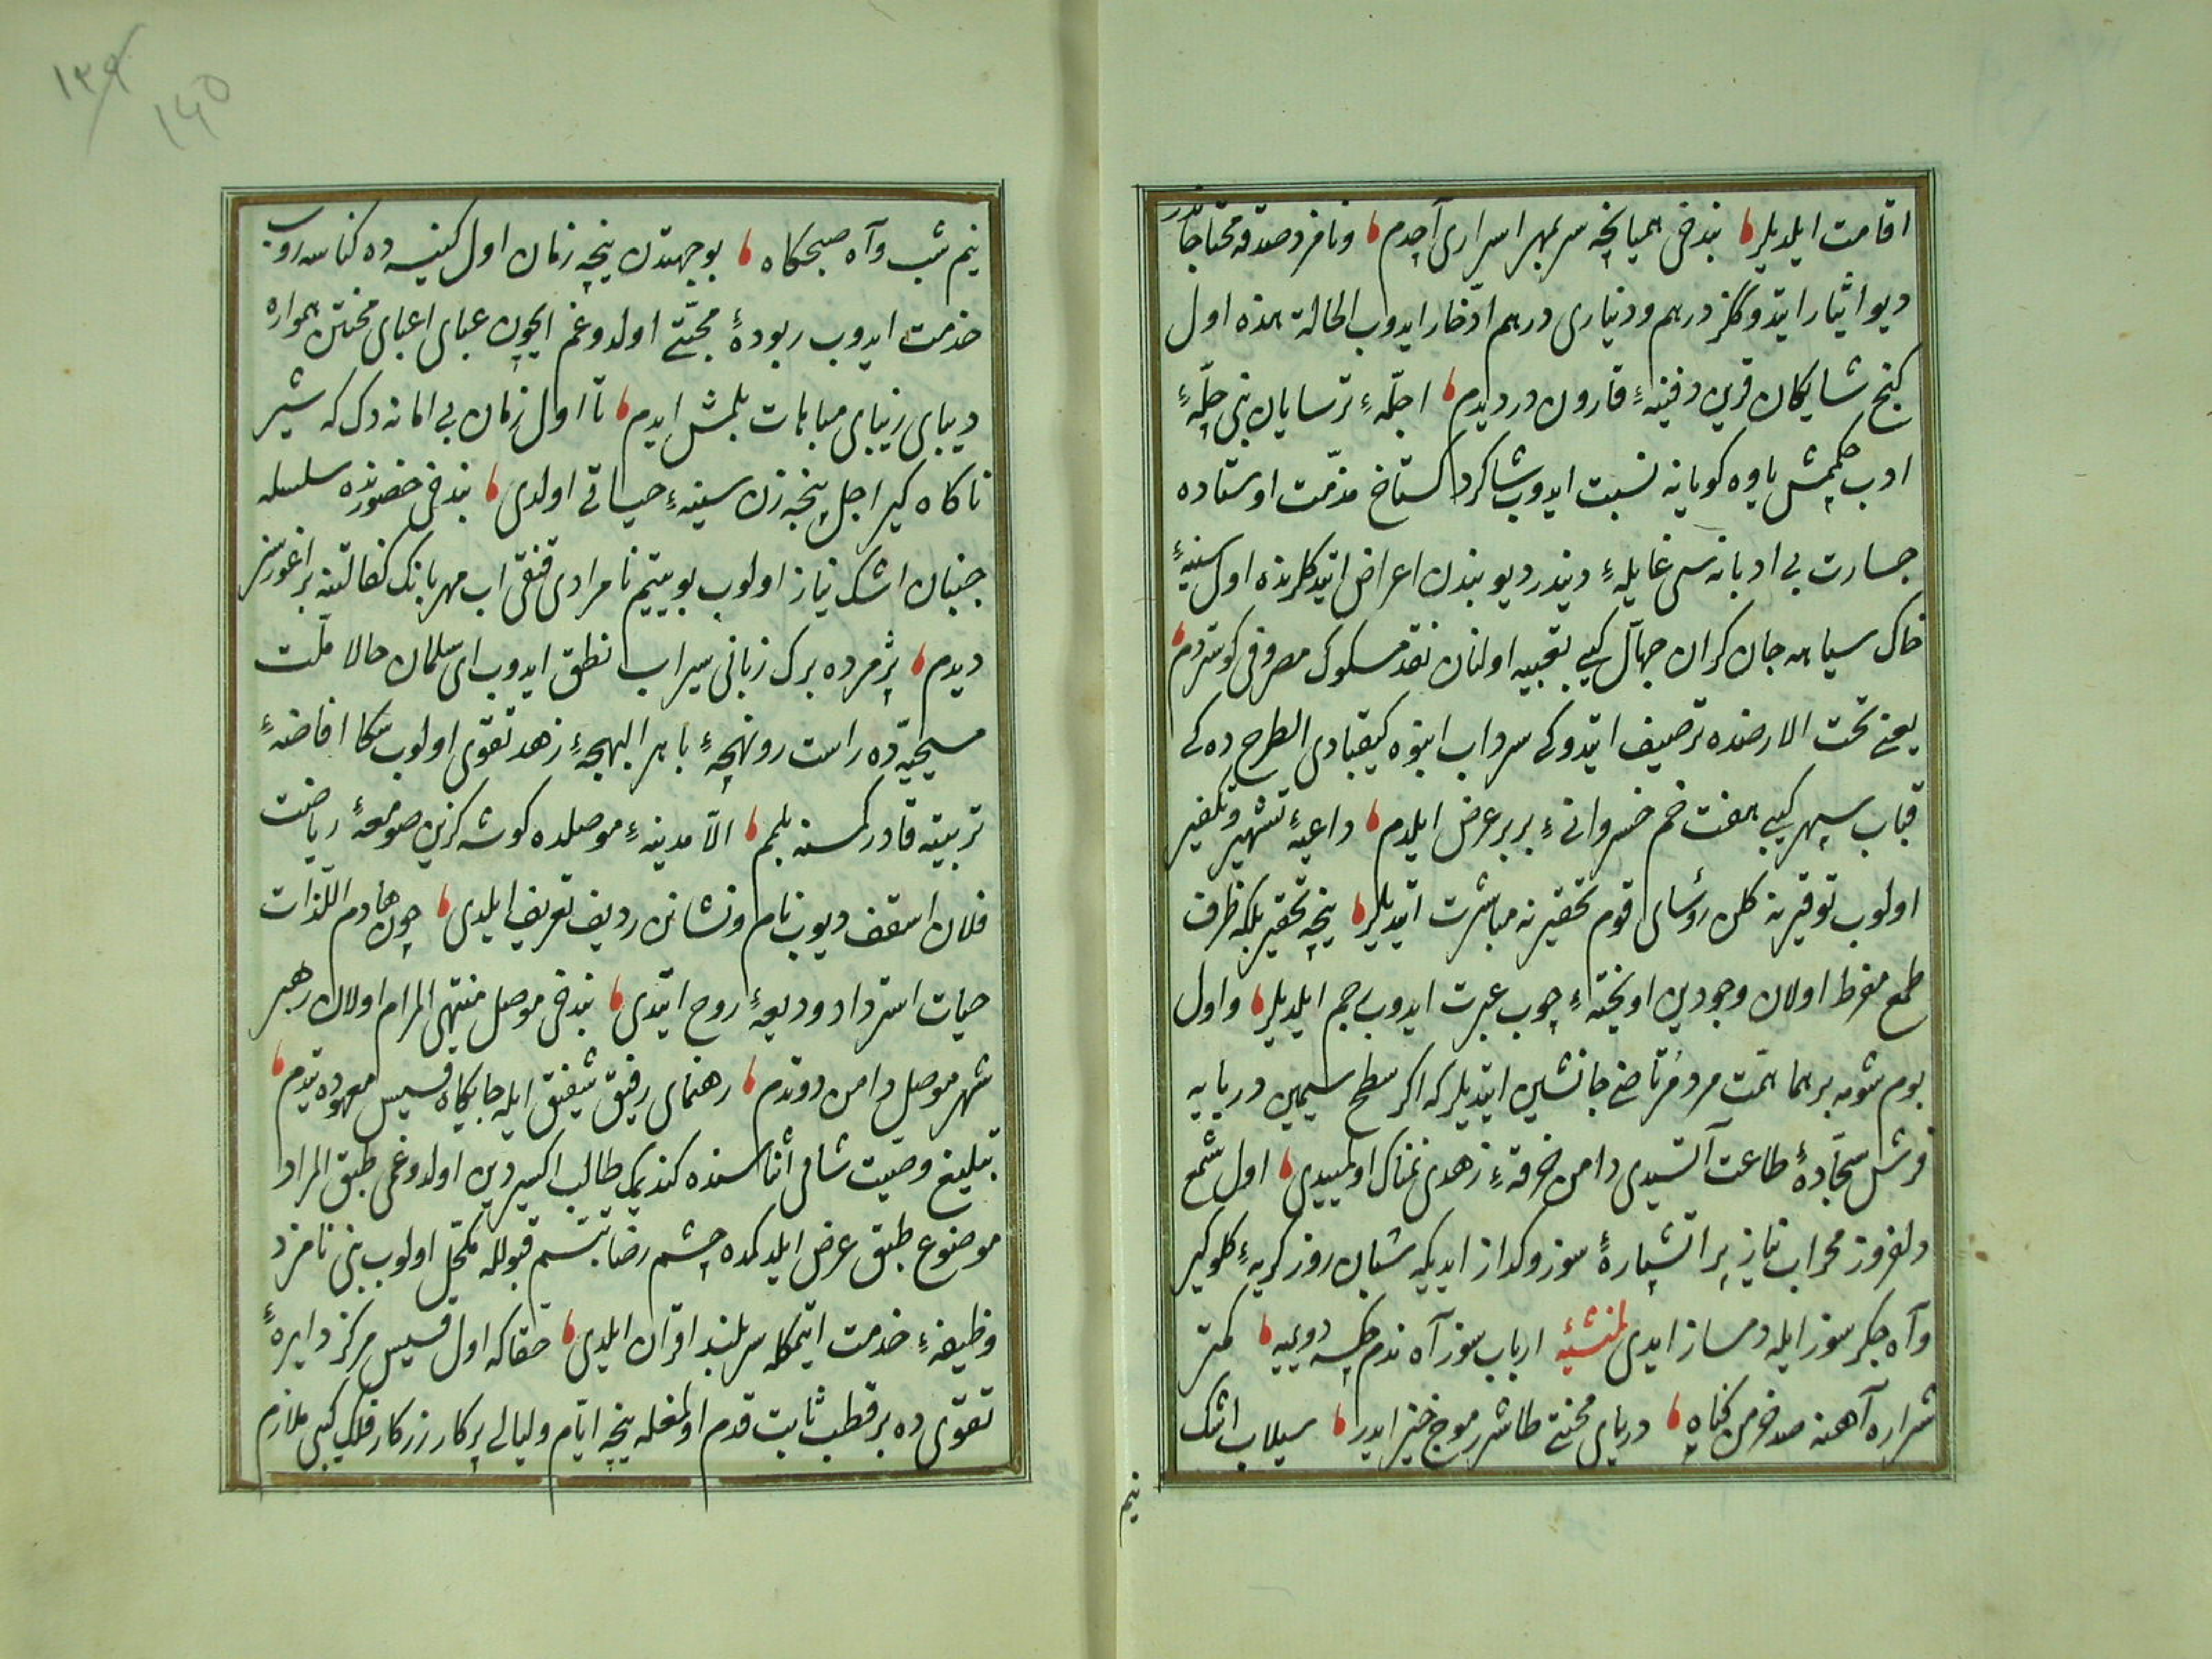 اقامت ایلدیلر، بندخی همیانچهٔ سربمهر اسراری آچدم، ونامزد صدقهٔ محتاجاندر
دیو ایثار ایتدوکلز درهم و دیناری درهم ادّخار ایدوب الحالة هذه اول
کنج شایکان قرین دفینهٔ قارون دردیدم، اجلّهٔ ترسایان بنی چلّهٔ
ادب چکمش یاوه کویانه نسبت ایدوب شاکرد کستاخ مذمّت اوستاده
جسارت بی ادبانه سی غایلهٔ دیندر دیو بندن اعراض ایتدکلرنده اول سینهٔ
خاک سیاهه جان کران جهال کبی تعبیه اولنان نقد مسکوک مصروفی کوستردم،
یعنی تحت الارضنده ترصیف ایتدوکی سرداب انبوه کیقبادی الطرح ده کی
قباب سپهر کبی هفت خم خسروانیٔ بربر عرض ایلدم، داعیهٔ تشهیر و تکفیر
اولوب توقیرنه کلن رؤسای قوم تحقیرنه مباشرت ایتدیلر، نیچه تحقیر بلکه ظرف
طمع مفرط اولان وجودین اویختهٔ چوب عبرت ایدوب رجم ایلدیلر، واول
بوم شومه بر هما همّت مرد مُرتاضی جانشین ایتدیلر که اکر سطح سیمین دریایه
فرش سجّادهٔ طاعت آتسیدی دامن خرقهٔ زهدی نمناک اولمییدی، اول شمع
دلفروز محراب نیاز پر آتشپارهٔ سوز وکداز ایدیکه شبان روز کریهٔ کلوکیر
وآه جکر سوز ایله دمساز ایدی لمنشئه ارباب سوز آه ندم چکسه دویمیه، کمتر
شراره آهنه صد خرمن کناه، دریای محنتی طاشرر موج خیز ایدر، سیلاب اشک
نیم
نیم شب وآه صبحکاه، بوجهتدن نیچه زمان اول کنیسه ده کناسه روب
خدمت ایدوب ربودهٔ محبّتی اولدوغم ایچون عبای اعبای محنتن همواره
دیبای زیبای مباهات بلمش ایدم، تا اول زمان بی امانه دک که شیر
ناکاه کیر اجل پنجه زن سینهٔ حیاتی اولدی، بندخی حضورنده سلسله
جنبان اشک نیاز اولوب بو یتیم نامرادی قنقی اب مهربانک کفالتینه براغورسز
دیدم، پژمرده برک زبانی سیراب نطق ایدوب ای سلمان حالا ملّت
مسیحیّه ده راست رو نهجهٔ باهر البهجهٔ زهد تقوی اولوب سکا افاضهٔ
تربیته قادر کمسنه بلمم، الّا مدینهٔ موصلده کوشه کزین صومعهٔ ریاضت
فلان اسقف دیوب نام ونشانن ردیف تعریف ایلدی، چون هادم اللّذات
حیات استرداد ودیعهٔ روح ایتدی، بندخی موصل منتهی المرام اولان رهبر
شهر موصل دامن دوندم، رهنمای رفیق شفیق ایله جایکاه قسیس معهوده یتدم،
تبلیغ وصیّت شافی اثناسنده کندیمک طالب اکسیر دین اولدوغمی طبق المراد
موضوع طبق عرض ایلدکمده چشم رضا تبسّم قبولله مکحّل اولوب بنی نامزد
وظیفهٔ خدمت ایتمکله سربلند اقران ایلدی، حقا که اول قسیس مرکز دایرهٔ
تقوی ده بر قطب ثابت قدم اولمغله نیچه ایّام ولیالی پرکار زرکار فلک کبی ملازم
١٣٩
١٤٥